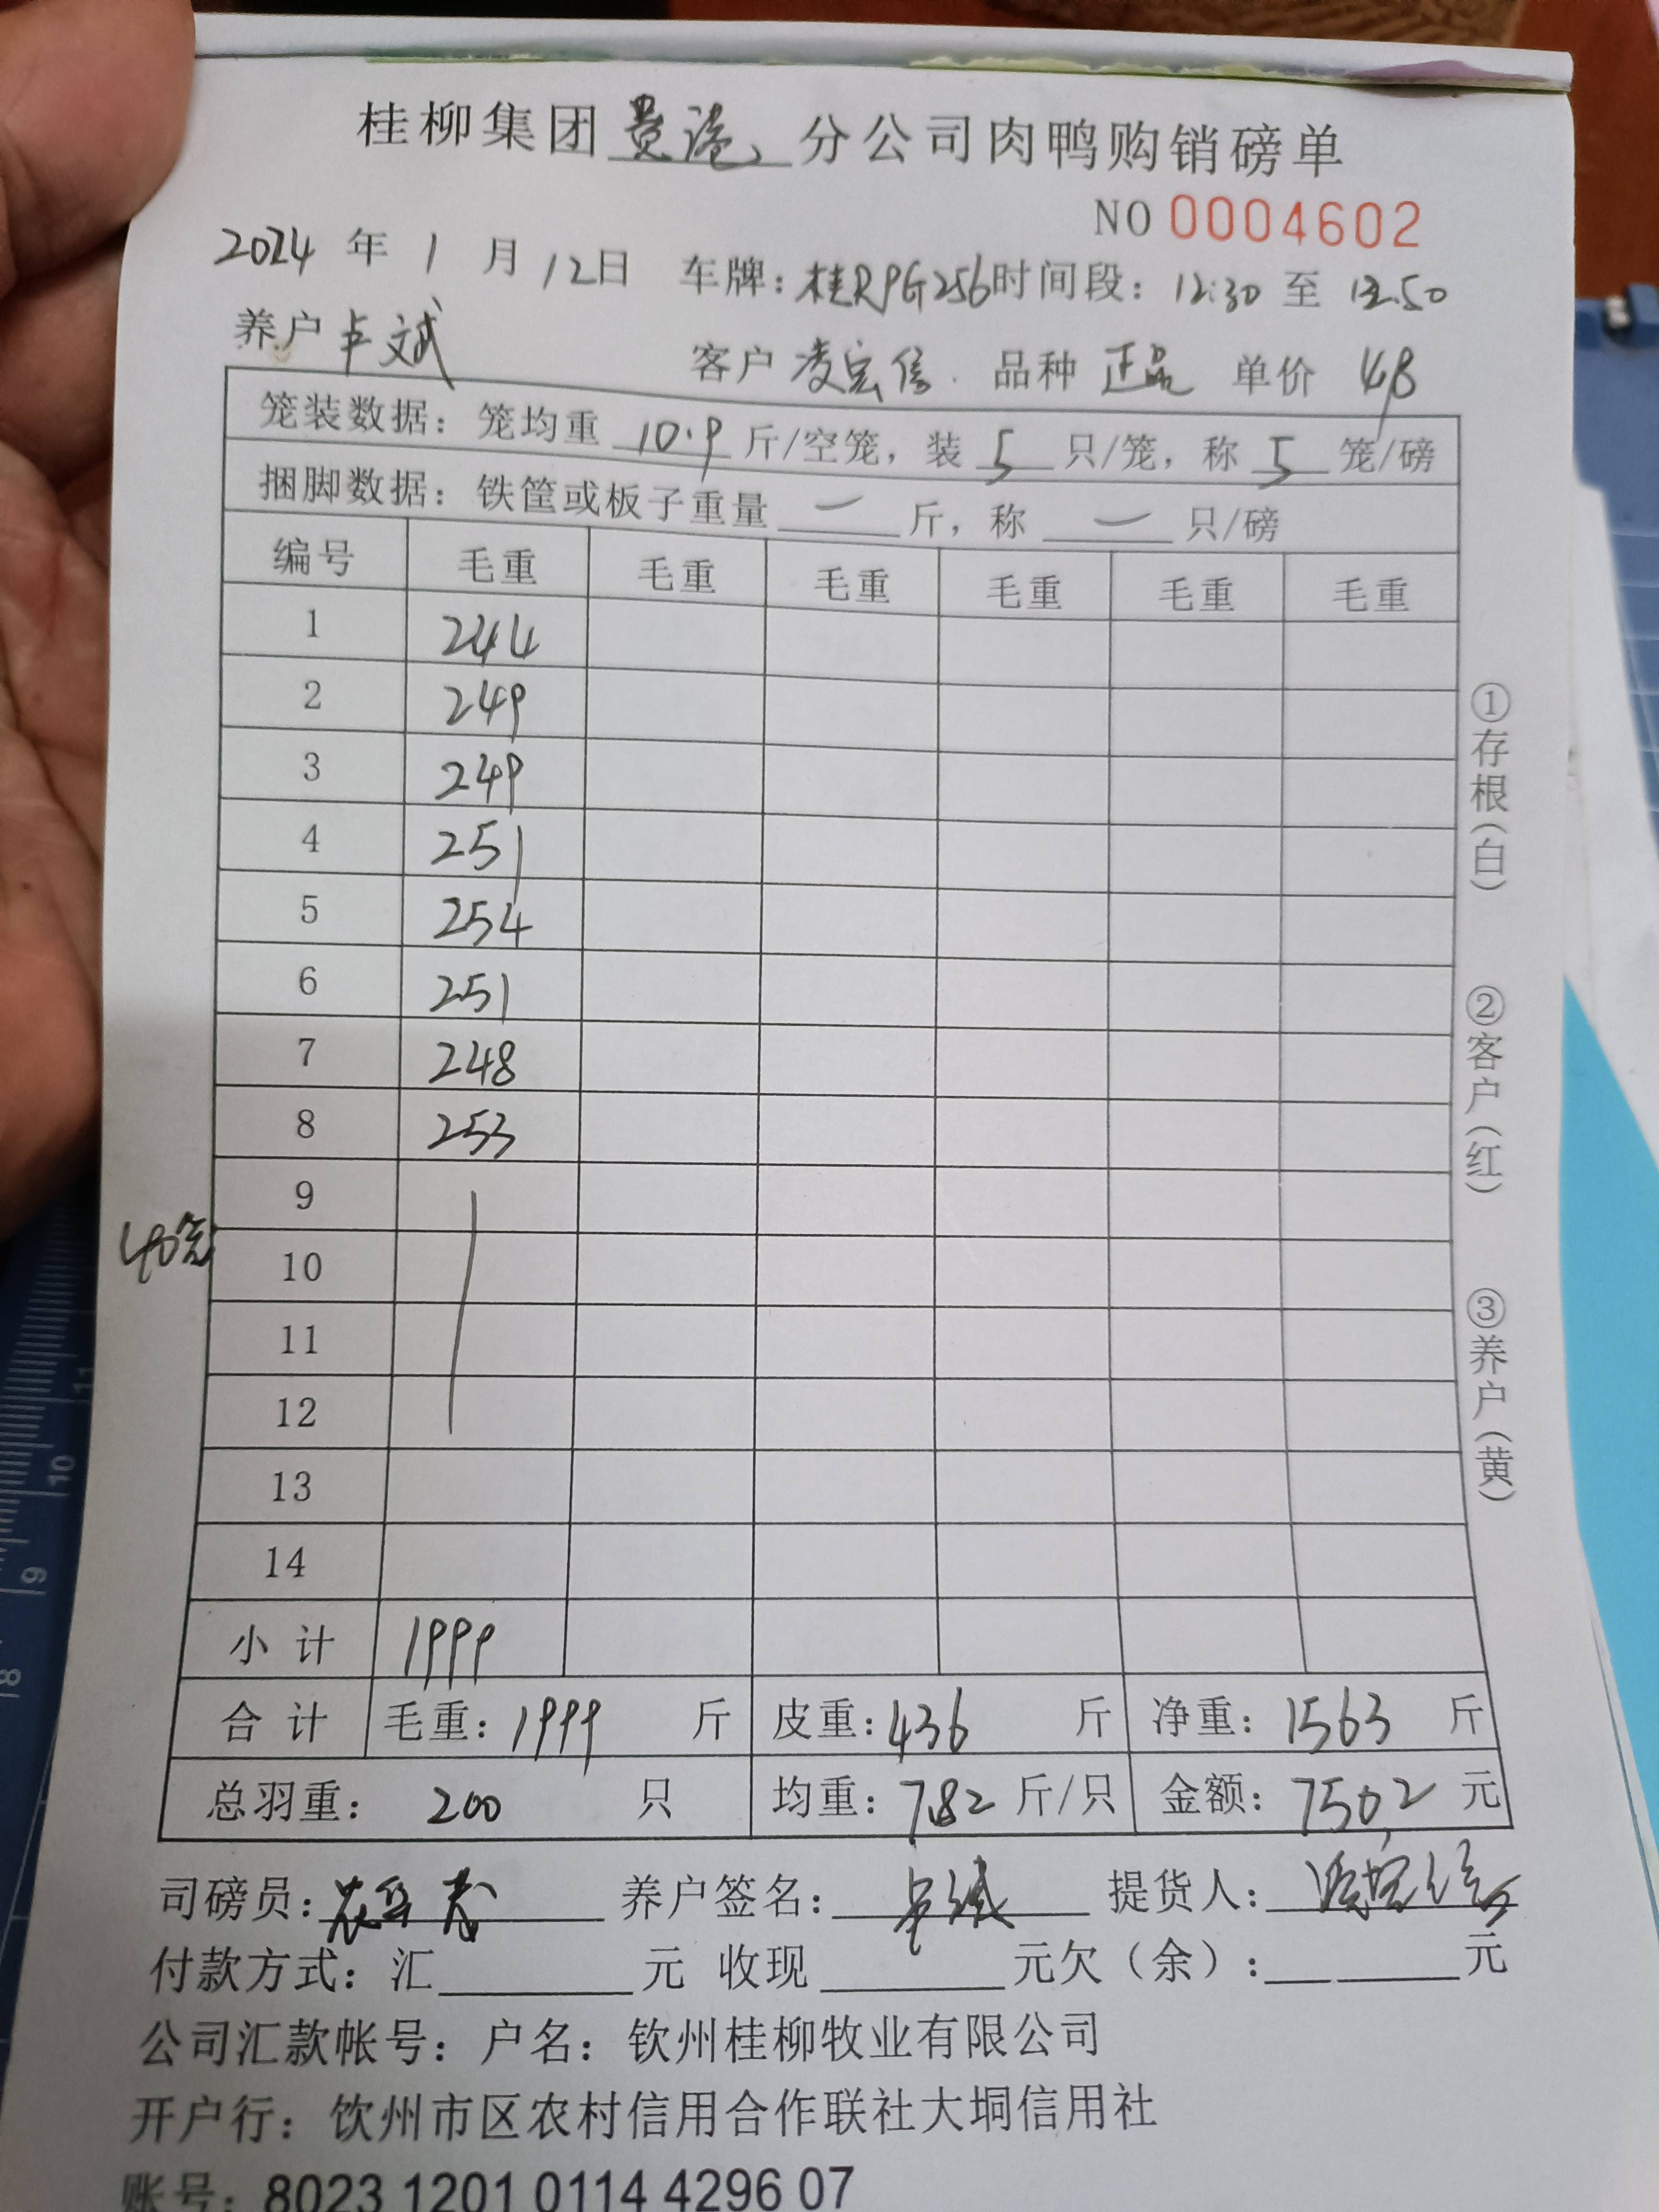 桂柳集团贵港分公司肉鸭购销磅单
NO 0004602
2024 年 1 月 12日 车牌：桂RPG256 时间段：12:30 至 12.50
养户 卢文斌 客户 凌宏信 品种 正品 单价 4.8
笼装数据：笼均重 10.9 斤/空笼，装 5 只/笼，称 5 笼/磅
捆脚数据：铁筐或板子重量 一 斤，称 一 只/磅
编号 毛重 毛重 毛重 毛重 毛重 毛重
1 244
2 249
3 249
4 251
5 254
6 251
7 248
8 253
9
40笼
10
11
12
13
14
小 计 1999
合 计 毛重：1999 斤 皮重：436 斤 净重：1563 斤
总羽重： 200 只 均重：7.82 斤/只 金额：7502 元
司磅员： 养户签名： 提货人：
付款方式：汇 元 收现 元欠（余）： 元
公司汇款帐号：户名：钦州桂柳牧业有限公司
开户行：钦州市区农村信用合作联社大垌信用社
账号：8023 1201 0114 4296 07
①存根（白）
②客户（红）
③养户（黄）